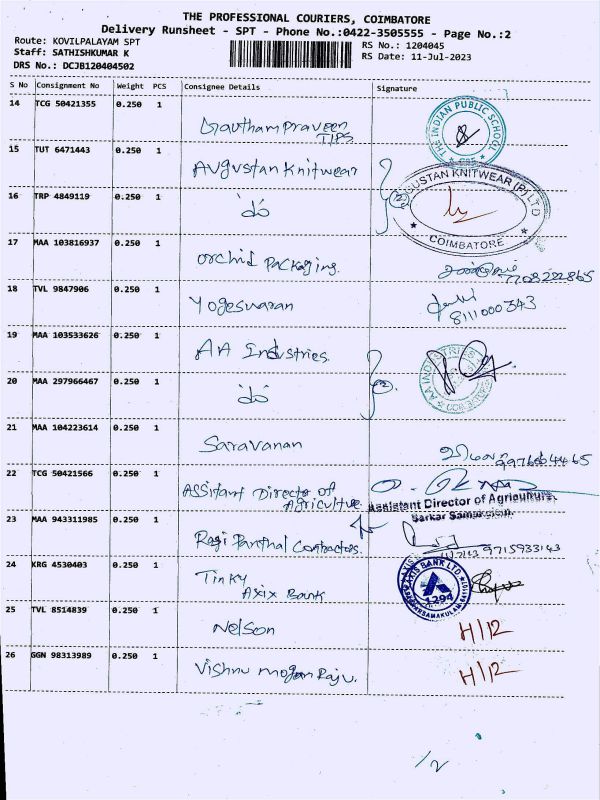 THE PROFESSIONAL COURIERS, COIMBATORE
Delivery Runsheet - SPT - Phone No.:0422-3505555 - Page No.:2
Route: KOVILPALAYAM SPT
RS No.: 1204045
Staff: SATHISHKUMAR K
RS Date: 11-Jul-2023
DRS No.: DCJB120404502
S No Consignment No Weight PCS Consignee Details Signature
14 TCG 50421355 0.250 1
Gautham Praveen
TIPS
THE INDIAN PUBLIC SCHOOL
CBE
15 TUT 6471443 0.250 1
Augustan Knitwear
AUGUSTAN KNITWEAR (P) LTD
COIMBATORE
16 TRP 4849119 0.250 1
do
(2)
17 MAA 103816937 0.250 1
Orchid Packaging.
7708222865
18 TVL 9847906 0.250 1
Yogeswaran
8111000343
19 MAA 103533626 0.250 1
AA Industries.
AA INDUSTRIES
20 MAA 297966467 0.250 1
do
(2)
21 MAA 104223614 0.250 1
Saravanan
22 TCG 50421566 0.250 1
Assistant Director of
Agriculture.
Assistant Director of Agriculture,
Sarkar Samakulam.
23 MAA 943311985 0.250 1
Ragi Panthal Contractors.
9715933143
24 KRG 4530403 0.250 1
Tinky
Axix Bank
AXIS BANK LTD.
1294
25 TVL 8514839 0.250 1
Nelson
H/12
26 GGN 98313989 0.250 1
Vishnu Mogan Raju.
H/12
1/2